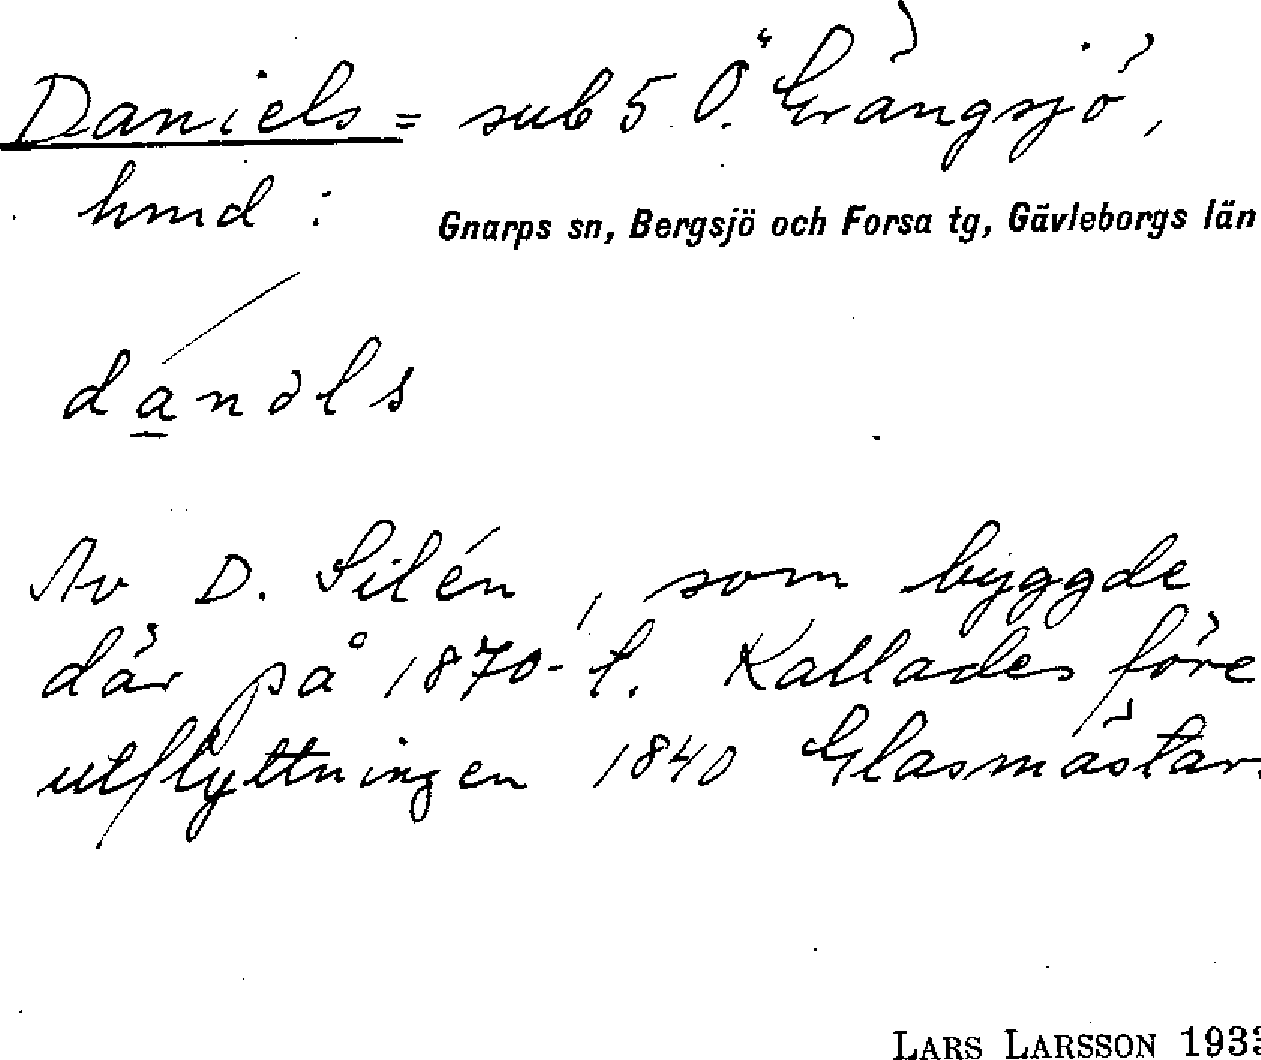 Daniels = sub 5 Ö. Grängsjö,
hmd :
Gnarps sn, Bergsjö och Forsa tg, Gävleborgs län
danəls
Av D. Silén, som byggde
där på 1870-t. Kallades före
utflyttningen 1840 Glasmästar.
LARS LARSSON 1933